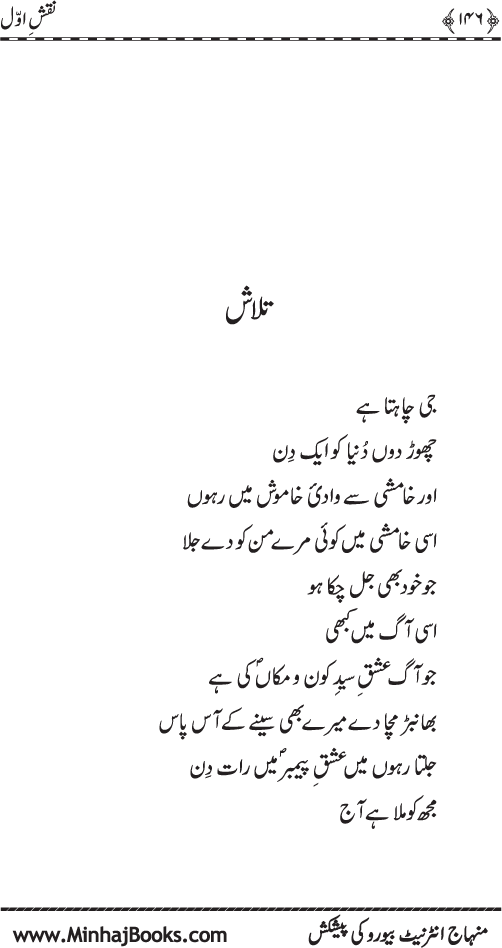 ﴿۱۴۶﴾ نقشِ اوّل
تلاش
جی چاہتا ہے
چھوڑ دوں دُنیا کو ایک دِن
اور خامشی سے وادیٔ خاموش میں رہوں
اسی خامشی میں کوئی مرے من کو دے جلا
جو خود بھی جل چکا ہو
اسی آگ میں کبھی
جو آگ عشقِ سیدِ کون و مکاںؐ کی ہے
بھانبڑ مچا دے میرے بھی سینے کے آس پاس
جلتا رہوں میں عشقِ پیمبرؐ میں رات دِن
مجھ کو ملا ہے آج
منہاج انٹرنیٹ بیورو کی پیشکش www.MinhajBooks.com